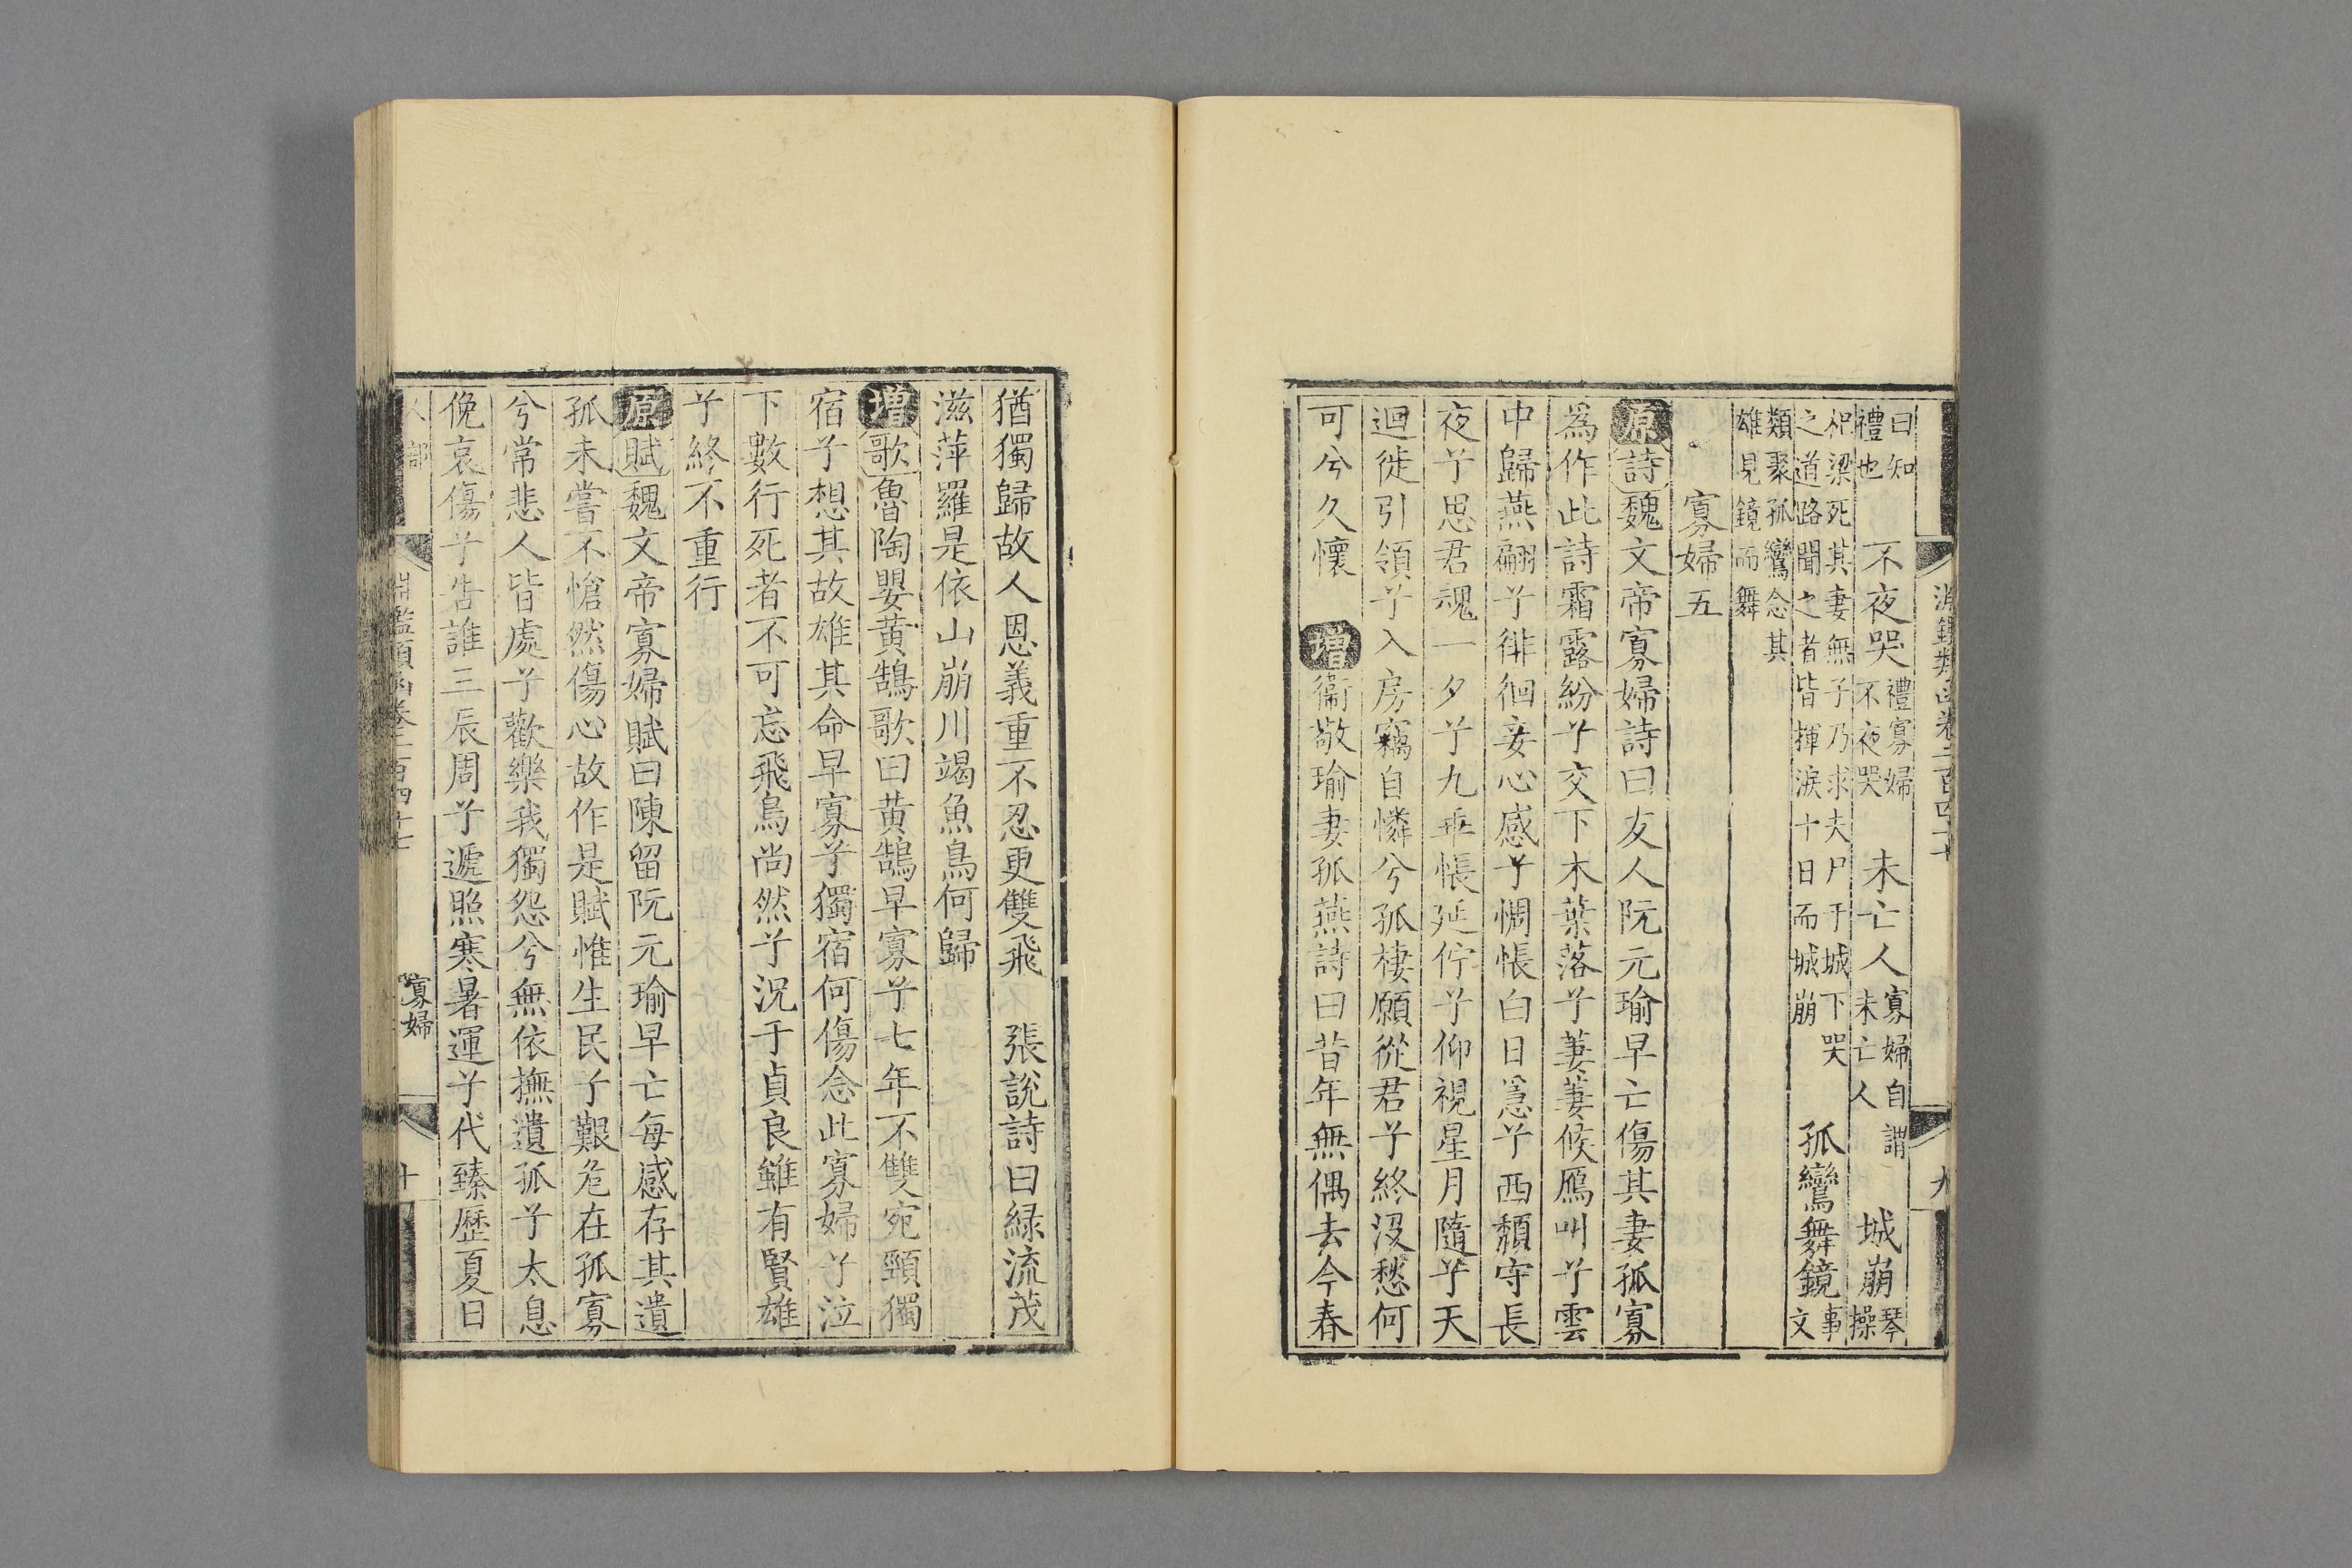 淵鑑類函卷二百四十七
九
曰知禮也　不夜哭　禮寡婦不夜哭　未亡人　寡婦自謂未亡人　城崩　琴操
杞梁死其妻無子乃求夫尸于城下哭之道路聞之者皆揮涙十日而城崩　孤鸞舞鏡　事文
類聚孤鸞念其雄見鏡而舞
寡婦五
原詩魏文帝寡婦詩曰友人阮元瑜早亡傷其妻孤寡
為作此詩霜露紛兮交下木葉落兮萋萋候鴈叫兮雲
中歸燕翩兮徘徊妾心感兮惆悵白日急兮西頽守長
夜兮思君魂一夕兮九乖悵延佇兮仰視星月隨兮天
迴徙引領兮入房竊自憐兮孤棲願從君兮終没愁何
可兮久懷　增衞敬瑜妻孤燕詩曰昔年無偶去今春
猶獨歸故人恩義重不忍更雙飛　張說詩曰緑流茂
滋萍羅是依山崩川竭魚鳥何歸
增歌魯陶嬰黄鵠歌曰黄鵠早寡兮七年不雙宛頸獨
宿兮想其故雄其命早寡兮獨宿何傷念此寡婦兮泣
下數行死者不可忘飛鳥尚然兮况于貞良雖有賢雄
兮終不重行
原賦魏文帝寡婦賦曰陳留阮元瑜早亡每感存其遺
孤未嘗不愴然傷心故作是賦惟生民兮艱危在孤寡
兮常悲人皆處兮歡樂我獨怨兮無依撫遺孤兮太息
俛哀傷兮告誰三辰周兮遞照寒暑運兮代臻歷夏日
人部
淵鑑類函卷二百四十七
寡婦
十